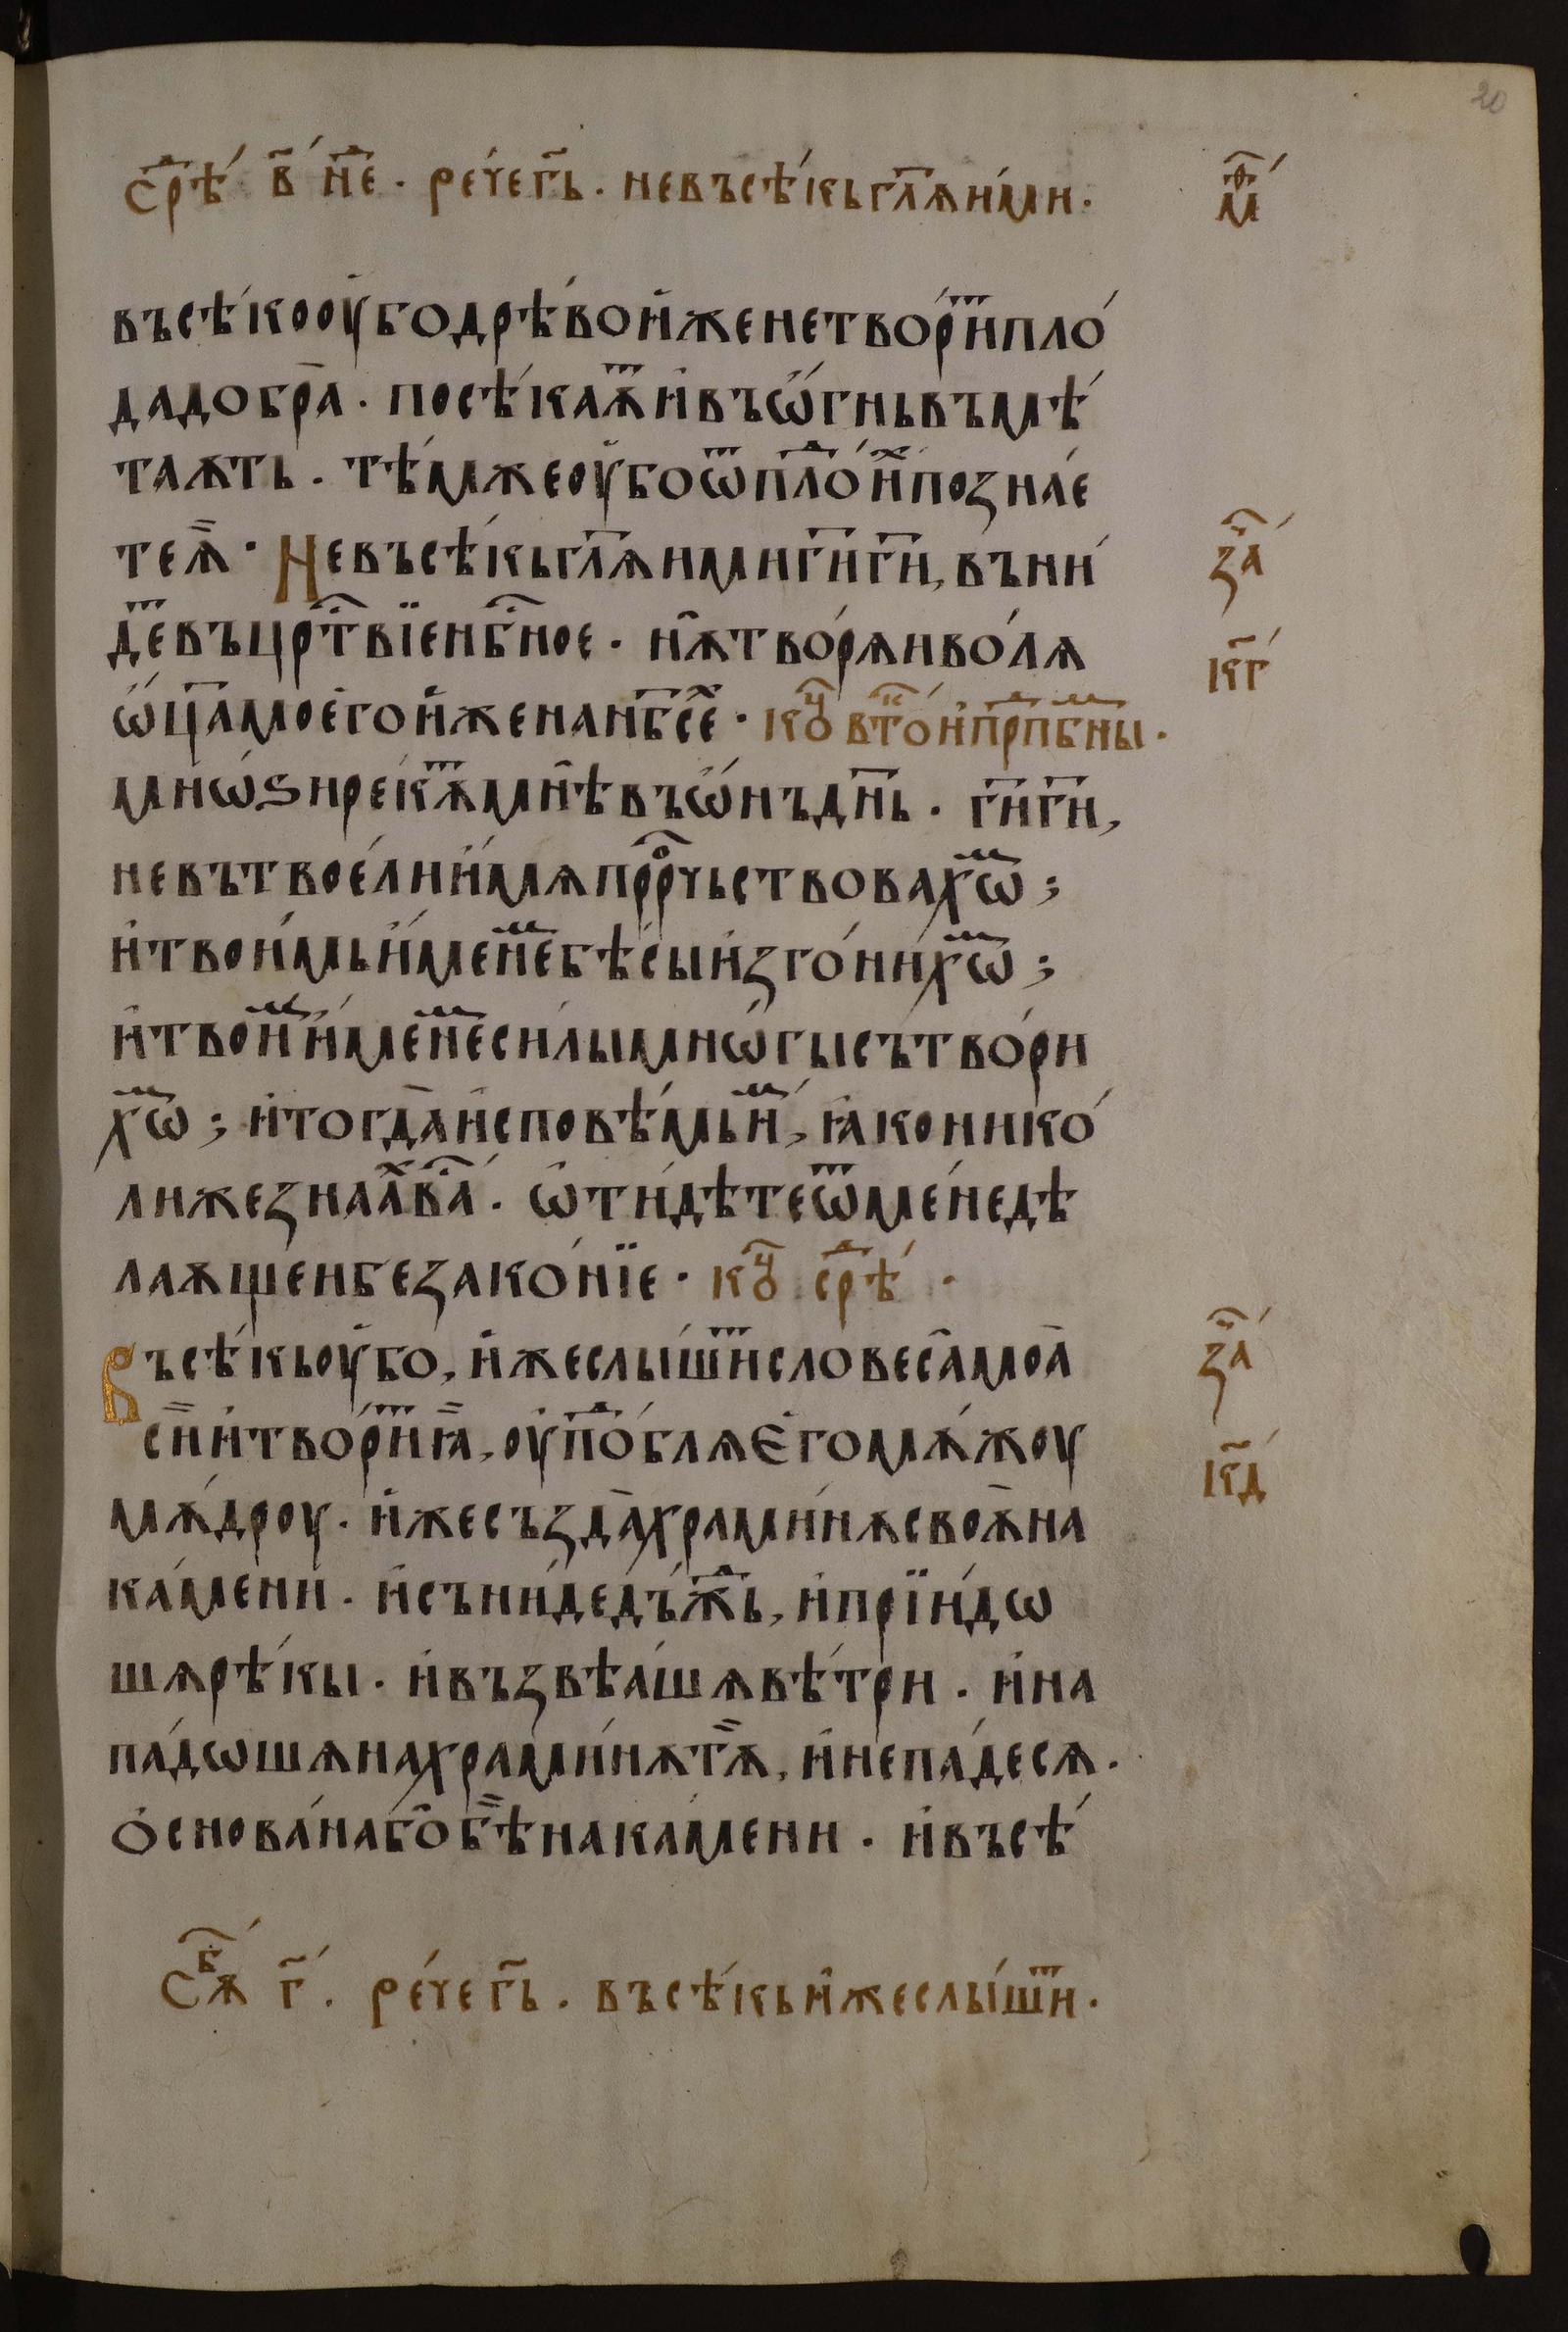 20
срⷣѣ́ в҃ нⷣе · рече́ г҃ь · невъсѣ́кьгл҃ѧи҆́ми ·
мⷴ
въсѣ́коꙋ҆бодрѣ́вои҆женетвори́ⷮпло́
дадобра · посѣ́каѫⷮи҆въѡ҆́гньвъмѣ́
таѫть · тѣ́мжеоу҆боѿплоⷣи́ⷯпозна́е
тесѧ · Невъсѣ́кьгл҃ѧимиг҃иг҃и, въни́
деⷮвъцрⷭ҇твїенбⷭ҇ное · нѫтво́рѧиво́лѧ
за҃
ѡ҆ц҃амоегои҆женанб҃сеⷯ · коⷰ҇ вто́ⷦи҆прⷣпⷣбныⷨ ·
к҃г
мнѡ́ѕирекѫ́ⷮмнѣвъѡ҆́нъдн҃ь · г҃иг҃и,
невътвоélии҆́мѧпрⷪ҇рчьствовахѡⷨ ;
и҆твои́мьи҆́менеⷨбѣ́сыи҆зго́нихѡⷨ ;
и҆твои́ⷨи҆́менеⷨси́лымнѡ́гысътво́ри
хѡⷨ ; и҆тогдаи҆сповѣ́мьиⷨ, ꙗ҆конико́
лижезнаⷯва́ⷭ · ѡ҆ти́дѣтеѿме́недѣ
лаѫщеибезако́нїе · коⷰ҇ срⷣѣ́ ·
Въсѣ́кьоу҆бо, и҆жеслы́шиⷮсловесамоа
за҃
сїи҆твори́ⷮꙗ, оу҆поⷣ́блѧе҆гомѫ́жоу
к҃д
мѫ́дроу · и҆жесъздахрами́нѫсвоѫна
ка́мени · и҆съни́дедъ́жⷣь, и҆прїи́дѡ
шѧрѣ́кы · и҆възвѣа́шѧвѣ́три · и҆на
па́дѡшѧнахрами́нѫтѫ, и҆непа́десѧ ·
ѻ҆снова́набобѣнака́мени · и҆въсѣ́
Сѫⷠ г҃ · рече́ г҃ь · въсѣ́кьи҆жеслы́шиⷮ ·